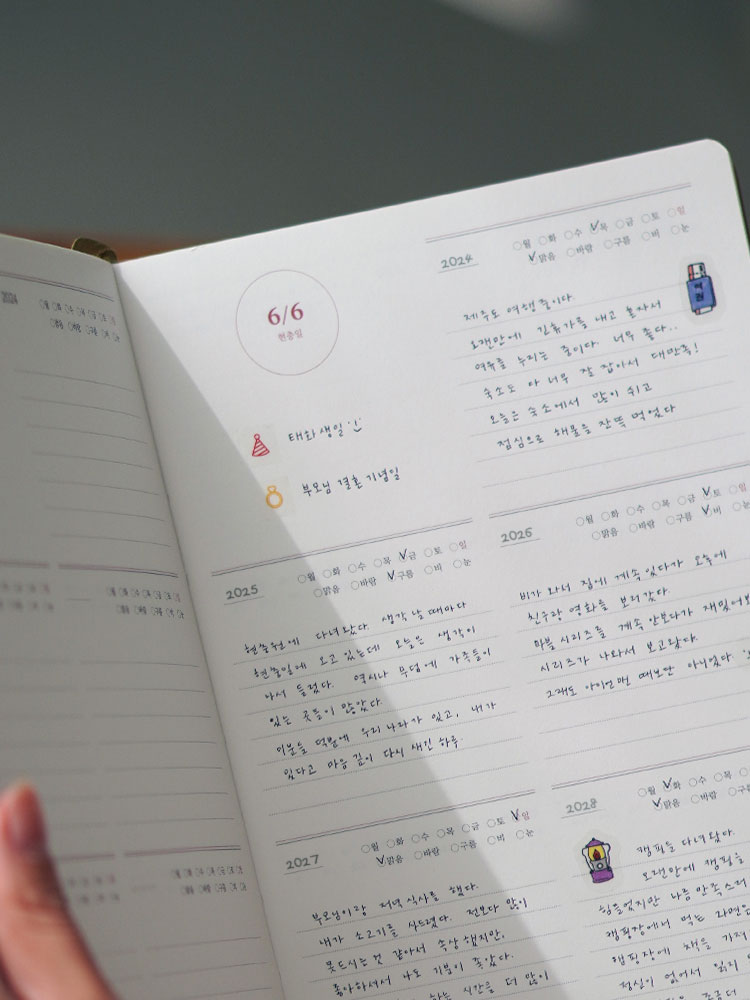 6/6
현충일
태화 생일
부모님 결혼 기념일
2024
○월 ○화 ○수 ○목 ○금 ○토 ○일
○맑음 ○바람 ○구름 ○비 ○눈
제주도 여행 중이다.
오랜만에 긴 휴가를 내고 혼자서
여유를 누리는 중이다. 너무 좋다..
숙소도 아 너무 잘 잡아서 대만족!
오늘은 숙소에서 많이 쉬고
점심으로 해물을 잔뜩 먹었다
2025
○월 ○화 ○수 ○목 ○금 ○토 ○일
○맑음 ○바람 ○구름 ○비 ○눈
현충원에 다녀왔다. 생각날 때마다
현충일에 오고 있는데 오늘은 생각이
나서 들렀다. 역시나 무덤에 가족들이
있는 곳들이 많았다.
이분들 덕분에 우리나라가 있고, 내가
있다고 마음 깊이 다시 새긴 하루.
2026
○월 ○화 ○수 ○목 ○금 ○토 ○일
○맑음 ○바람 ○구름 ○비 ○눈
비가 와서 집에 계속 있다가 오후에
친구랑 영화를 보러갔다.
마블 시리즈를 계속 안보다가 재밌어보
시리즈가 나와서 보고왔다.
그래도 아이언맨 때보단 아니었다
2027
○월 ○화 ○수 ○목 ○금 ○토 ○일
○맑음 ○바람 ○구름 ○비 ○눈
부모님이랑 저녁 식사를 했다.
내가 소고기를 사드렸다. 전보다 많이
못드시는 것 같아서 속상했지만,
좋아하셔서 나도 기분이 좋았다.
하는 시간을 더 많이
2028
○월 ○화 ○수 ○목
○맑음 ○바람 ○구름
캠핑을 다녀왔다.
오랜만에 캠핑을
힘들었지만 나름 만족스러
캠핑장에서 먹는 라면은
캠핑장에 책을 가져
정신이 없어서 읽지
조금 더